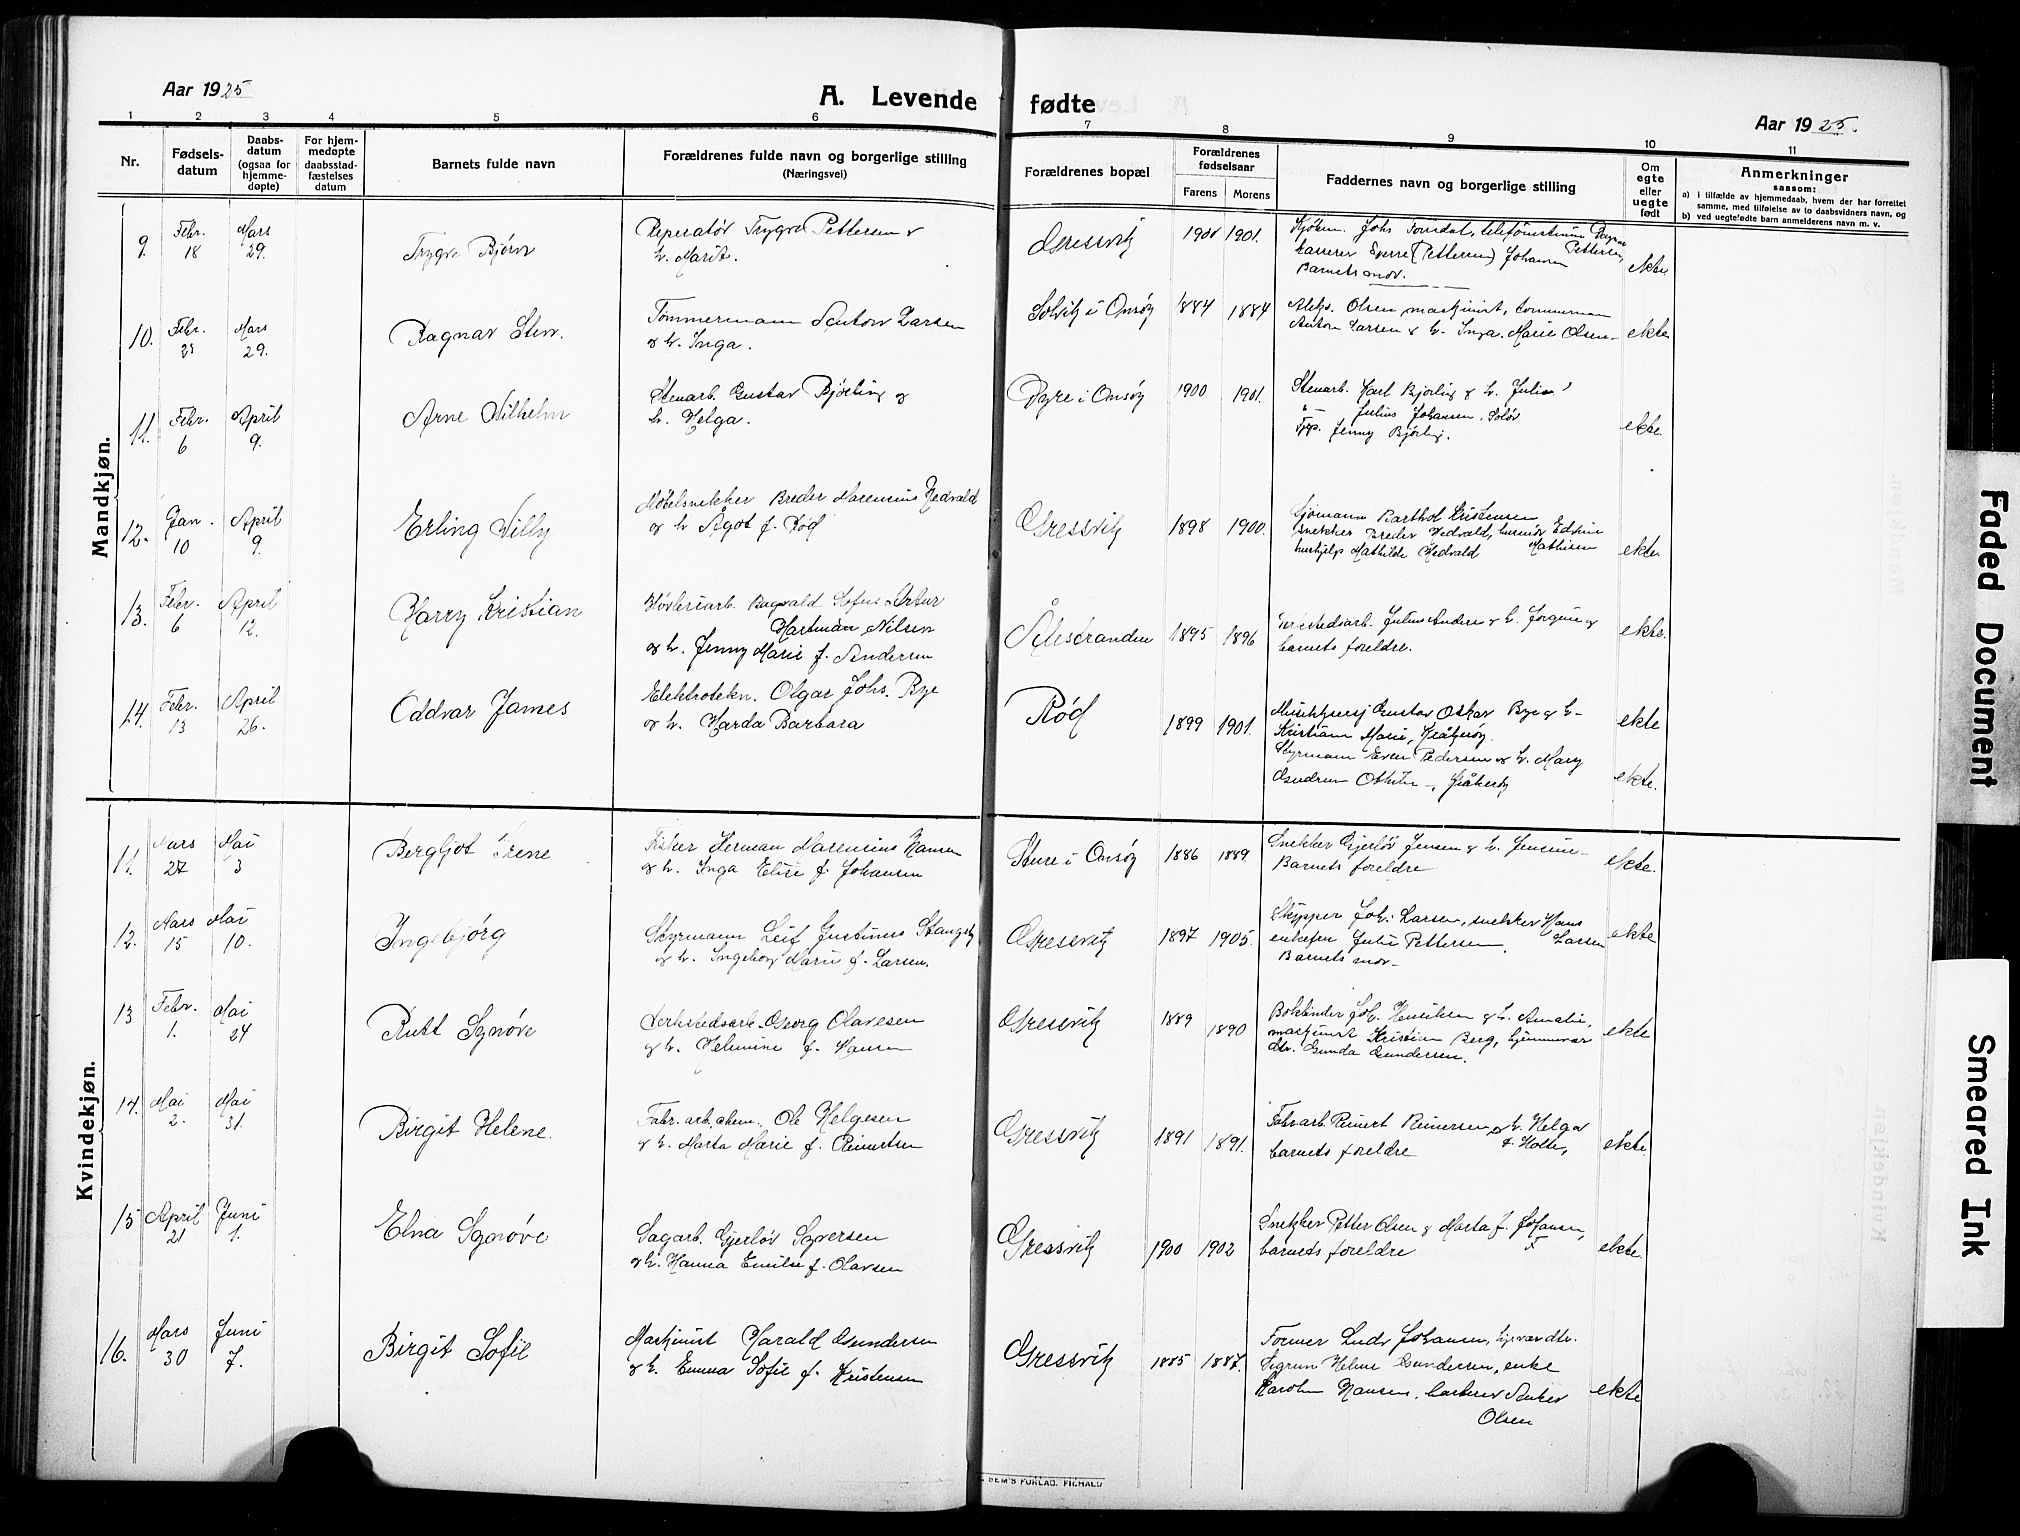 Aar 1925
A. Levende fødte
Aar 1925.
1 2 3 4 5 6 7 8 9 10 11
Nr.
Fødsels-
datum
Daabs-
datum
(ogsaa for
hjemme-
døpte)
For hjem-
medøpte
daabsstad-
fæstelses
datum
Barnets fulde navn
Forældrenes fulde navn og borgerlige stilling
(Næringsvei)
Forældrenes bopæl
Forældrenes
fødselsaar
Farens Morens
Faddernes navn og borgerlige stilling
Om
egte
eller
uegte
født
Anmerkninger
saasom:
a) i tilfælde av hjemmedaab, hvem der har forrettet
samme, med tilføielse av to daabsvidners navn, og
b) ved uegtefødte barn anmelderens navn m. v.
Mandkjøn.
9. Febr. 18 Mars 29.
Trygve Bjørn
Reperatør Trygve Pettersen &
h. Marit.
Gressvik
1901.
Johs
Pettersen,
(Pettersen) Johansen
Barnets mor.
ekte
10. Febr. Mars 29.
Ragnar Sten.
Tømmermann Anton Larsen
og h. Inga.
Solvik i Onsøy
1884 1884
Aleks. Olsen, maskinist, tømmermann
Anton Larsen & h. Inga. Marie Olsen
ekte
11. Febr. 6 April 9.
Arne Vilhelm
Stenarb. Gustav Bjørling og
h. Helga.
Dyre i Onsøy
1900 1901.
Stenarb. Karl Bjørling & h. Julie
Julius Johansen,
Jenny Bjørling.
ekte.
12. Jan. 10 April 9.
Erling Villy
Møbelsnekker Breder Marensius Hedvald
og h Ågot f. Rød
Gressvik
1898 1900.
Sjømann Barthol Kristensen
snekker Breder Hedvald,
Mathisen
hushjelp Mathilde Hedvald
ekte.
13. Febr. 6 April 12.
Harry Kristian
Høvleriarb. Bagvald Sofus Artur
Hartman Nilsen
og h. Jenny Marie f. Andersen
Ålestranden
1895 1896
Verkstedsarb. Julius Anders & h. Jørgine og
barnets foreldre.
ekte.
14. Febr. 13 April 26.
Oddvar James
Elektrotekn. Olgar Johs. Bye
og h. Harda Barbara
Rød
1899 1901.
Gustav Oskar Bye & h.
Kristiane Marie, Kråkerøy.
Styrmann Even Pedersen og h. Mary
Gudrun Kråkerøy
ekte
ekte.
Kvindekjøn.
11. Mars 27 Mai 3
Bergljot Irene
Fisker Herman Marensius Hansen
og h. Inga Elise f. Johansen
Sture i Onsøy
1886 1889.
Snekker Gjerløv Jensen & h. Jensine
Barnets foreldre
ekte.
12. Mars 15 Mai 10.
Ingebjørg
Styrmann Leif Gustinus Stangeby
og h. Ingeborg Marie f. Larsen.
Gressvik
1897 1905.
Skipper Joh. Larsen, snekker Hans
Larsen
enkefru Julie Pettersen,
Barnets mor
ekte
13 Febr. 1. Mai 24
Rutt Synøve
Verkstedsarb. Georg Olavesen
og h. Helmine f. Hansen
Gressvik
1889 1890
Bokbinder Joh. Henriksen & h. Amalie,
maskinist Kristian Berg, hjemmevær.
dtr. Gunda Gundersen.
ekte
14. Mai 2. Mai 31.
Birgit Helene.
Fabr. arb. chem. Ole Helgesen
& h. Marta Marie f. Reinertsen
Gressvik
1891 1891.
Fabr arb Reinert Reinersen & h. Helga
f. Holte,
barnets foreldre
ekte.
15 April 21 Juni 1.
Elna Synøve
Sagarb. Gjerløv Syversen
og h. Hanna Emilie f. Olavsen
Gressvik
1900 1902
Snekker Petter Olsen & Marta f. Johansen,
barnets foreldre
ekte.
16. Mars 30 Juni 7.
Birgit Sofie
Maskinist Harald Gundersen
og h. Emma Sofie f. Kristensen
Gressvik
1885 1887.
Former Ludv Johansen, hjv. dtr.
Sigrun Helene Gundersen, enke
Karoline Hansen, Anker
Olsen
ekte
SEM'S FORLAG. FR.HALD
Faded Document
Smeared Ink